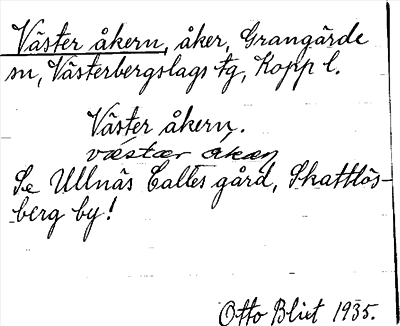 Väster åkern, åker, Grangärde
sn, Västerbergslags tg, Kopp l.
Väster åkern.
Se Ullnäs Calles gård, Skattlös-
berg by!
Otto Blixt 1935.